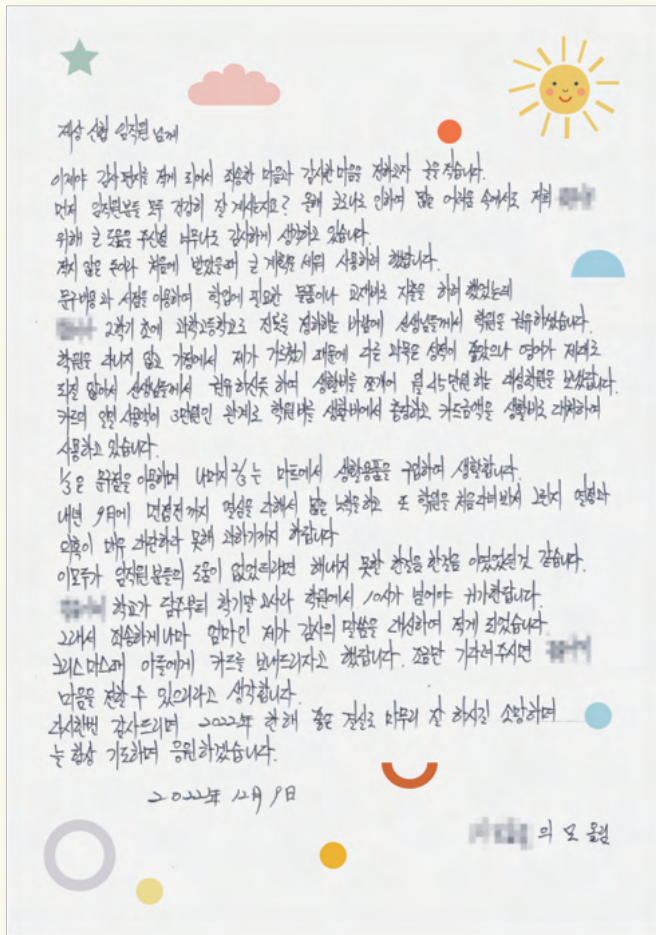 세상 신협 임직원 님께
이제야 감사편지를 적게 되어서 죄송한 마음과 감사한 마음을 전하고자 글을 적습니다.
먼저 임직원분들 모두 건강히 잘 계시는지요? 올해 코로나로 인하여 많은 어려움 속에서도 저희
위해 큰 도움을 주신걸 너무나도 감사하게 생각하고 있습니다.
적지 않은 돈이라 처음에 받았을때 큰 계획을 세워 사용하려 했답니다.
문구비용과 서점을 이용하여 학업에 필요한 물품이나 교재비로 지출을 하려 했었는데
2학기 초에 과학고등학교로 진로를 정하는 바람에 선생님들께서 학원을 권유하셨습니다.
학원을 다니지 않고 가정에서 제가 가르쳤기 때문에 다른 과목은 성적이 좋았으나 영어가 제대로
되질 않아서 선생님들께서 권유하신듯 하여 생활비를 쪼개어 월 45만원 하는 학원을 보냈습니다.
카드의 일일 사용액이 3만원인 관계로 학원비를 생활비에서 충당하고 카드금액을 생활비로 대체하여
사용하고 있습니다.
1/3은 문구점을 이용하며 나머지 2/3는 마트에서 생활용품을 구입하여 생활합니다.
내년 9월에 면접전까지 열심을 다해서 많은 노력을 하고 또 학원을 처음 다녀봐서 그런지 열정과
의욕이 매우 대단하다 못해 과하기까지 하답니다
이모두가 임직원분들의 도움이 없었더라면 해내지 못한 한걸음 한걸음 이었었던것 같습니다.
학교가 담주부터 학기말고사라 학원에서 10시가 넘어야 귀가한답니다.
그래서 죄송하게나마 엄마인 제가 감사의 말씀을 대신하여 적게 되었습니다.
크리스마스때 아들에게 카드를 보내드리자고 했답니다. 조금만 기다려주시면
마음을 전할 수 있으리라고 생각합니다.
다시한번 감사드리며 2022年 한해 좋은 결실로 마무리 잘 하시길 소망하며
늘 항상 기도하며 응원하겠습니다.
2022年 12月 9日
의 모 올림